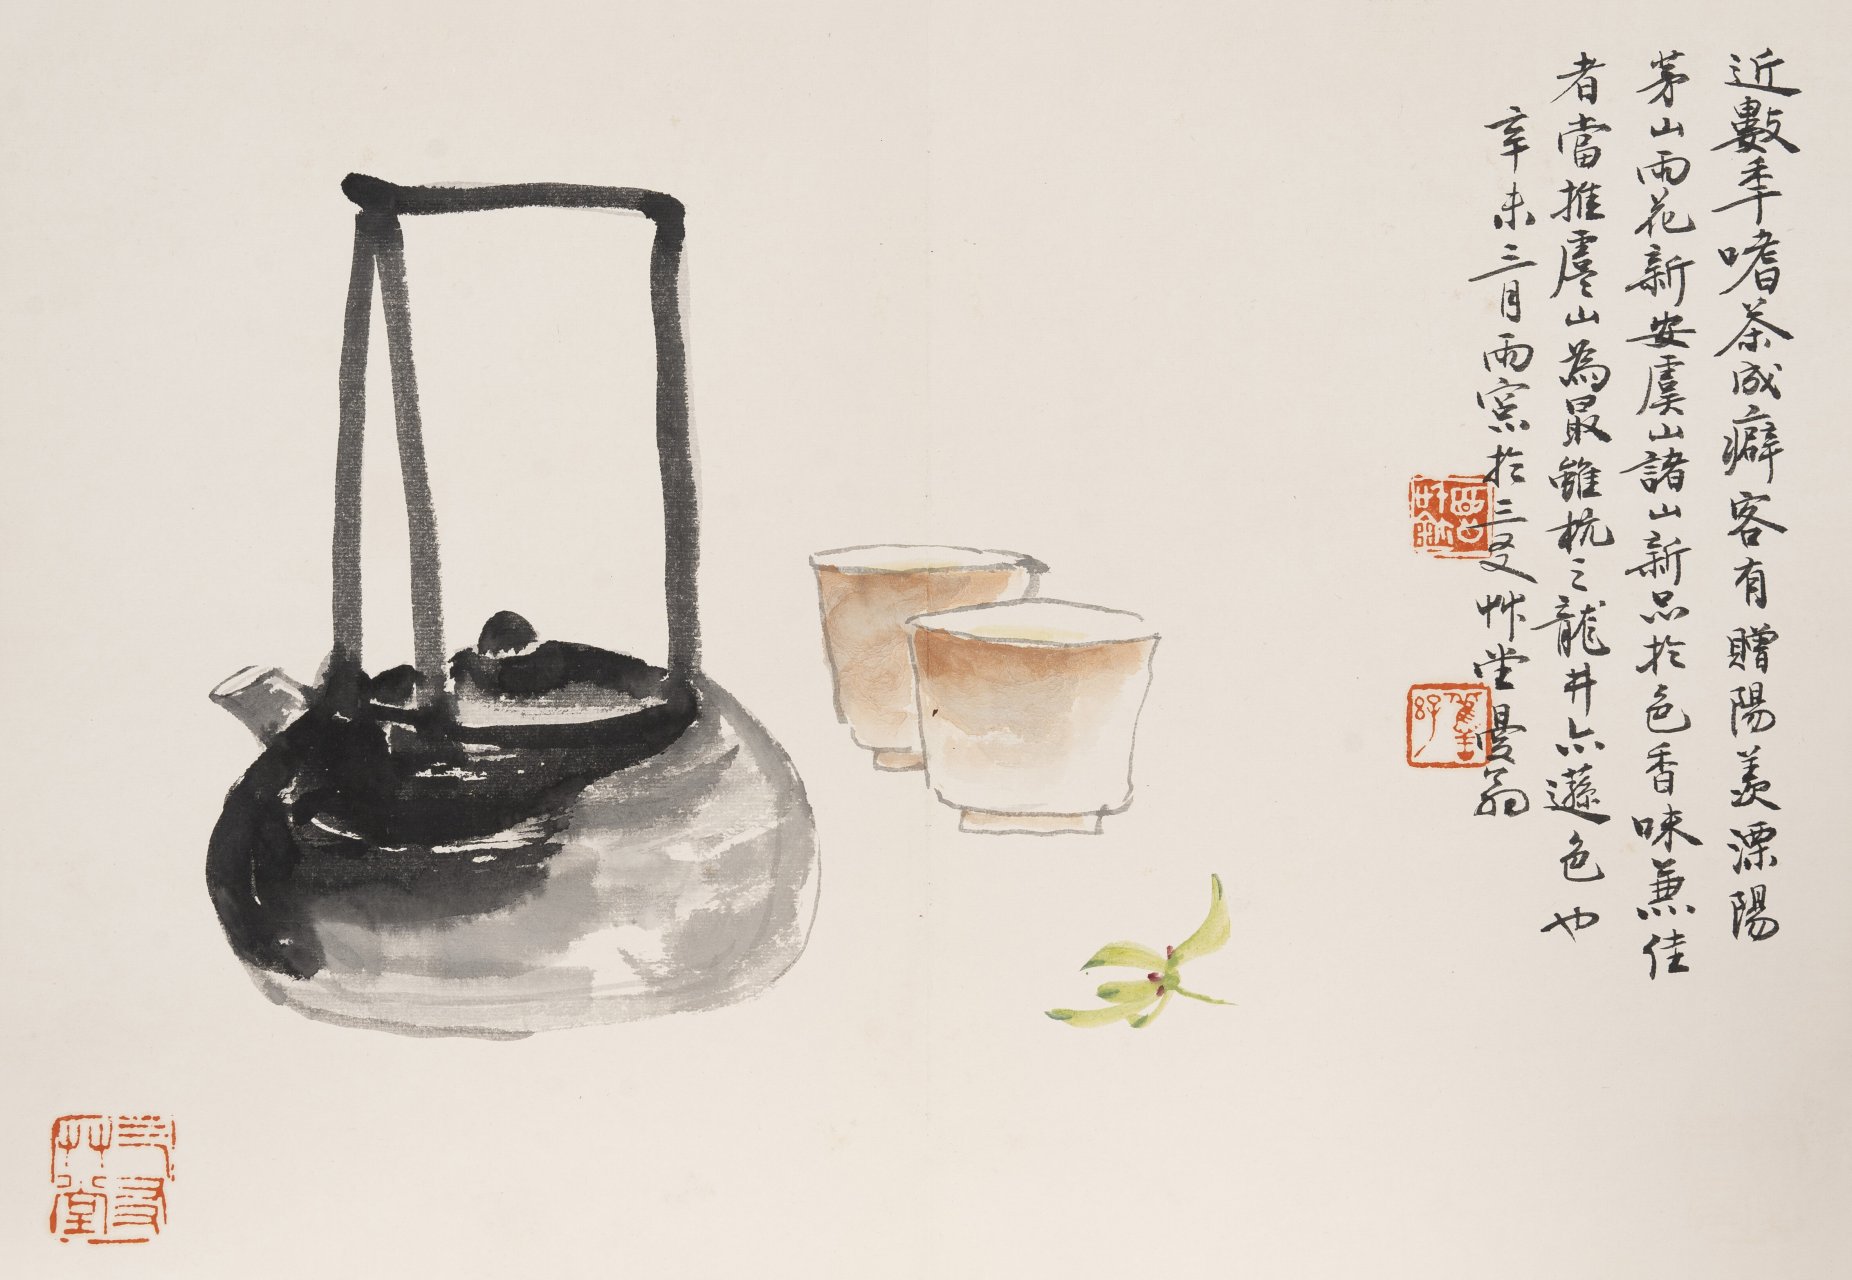 近數年嗜茶成癖客有贈陽羨溧陽
茅山雨花新安虞山諸山新品於色香味兼佳
者當推虞山為最雖杭之龍井亦遜色也
辛未三月雨窗於三友艸堂曼翁
三友
草堂